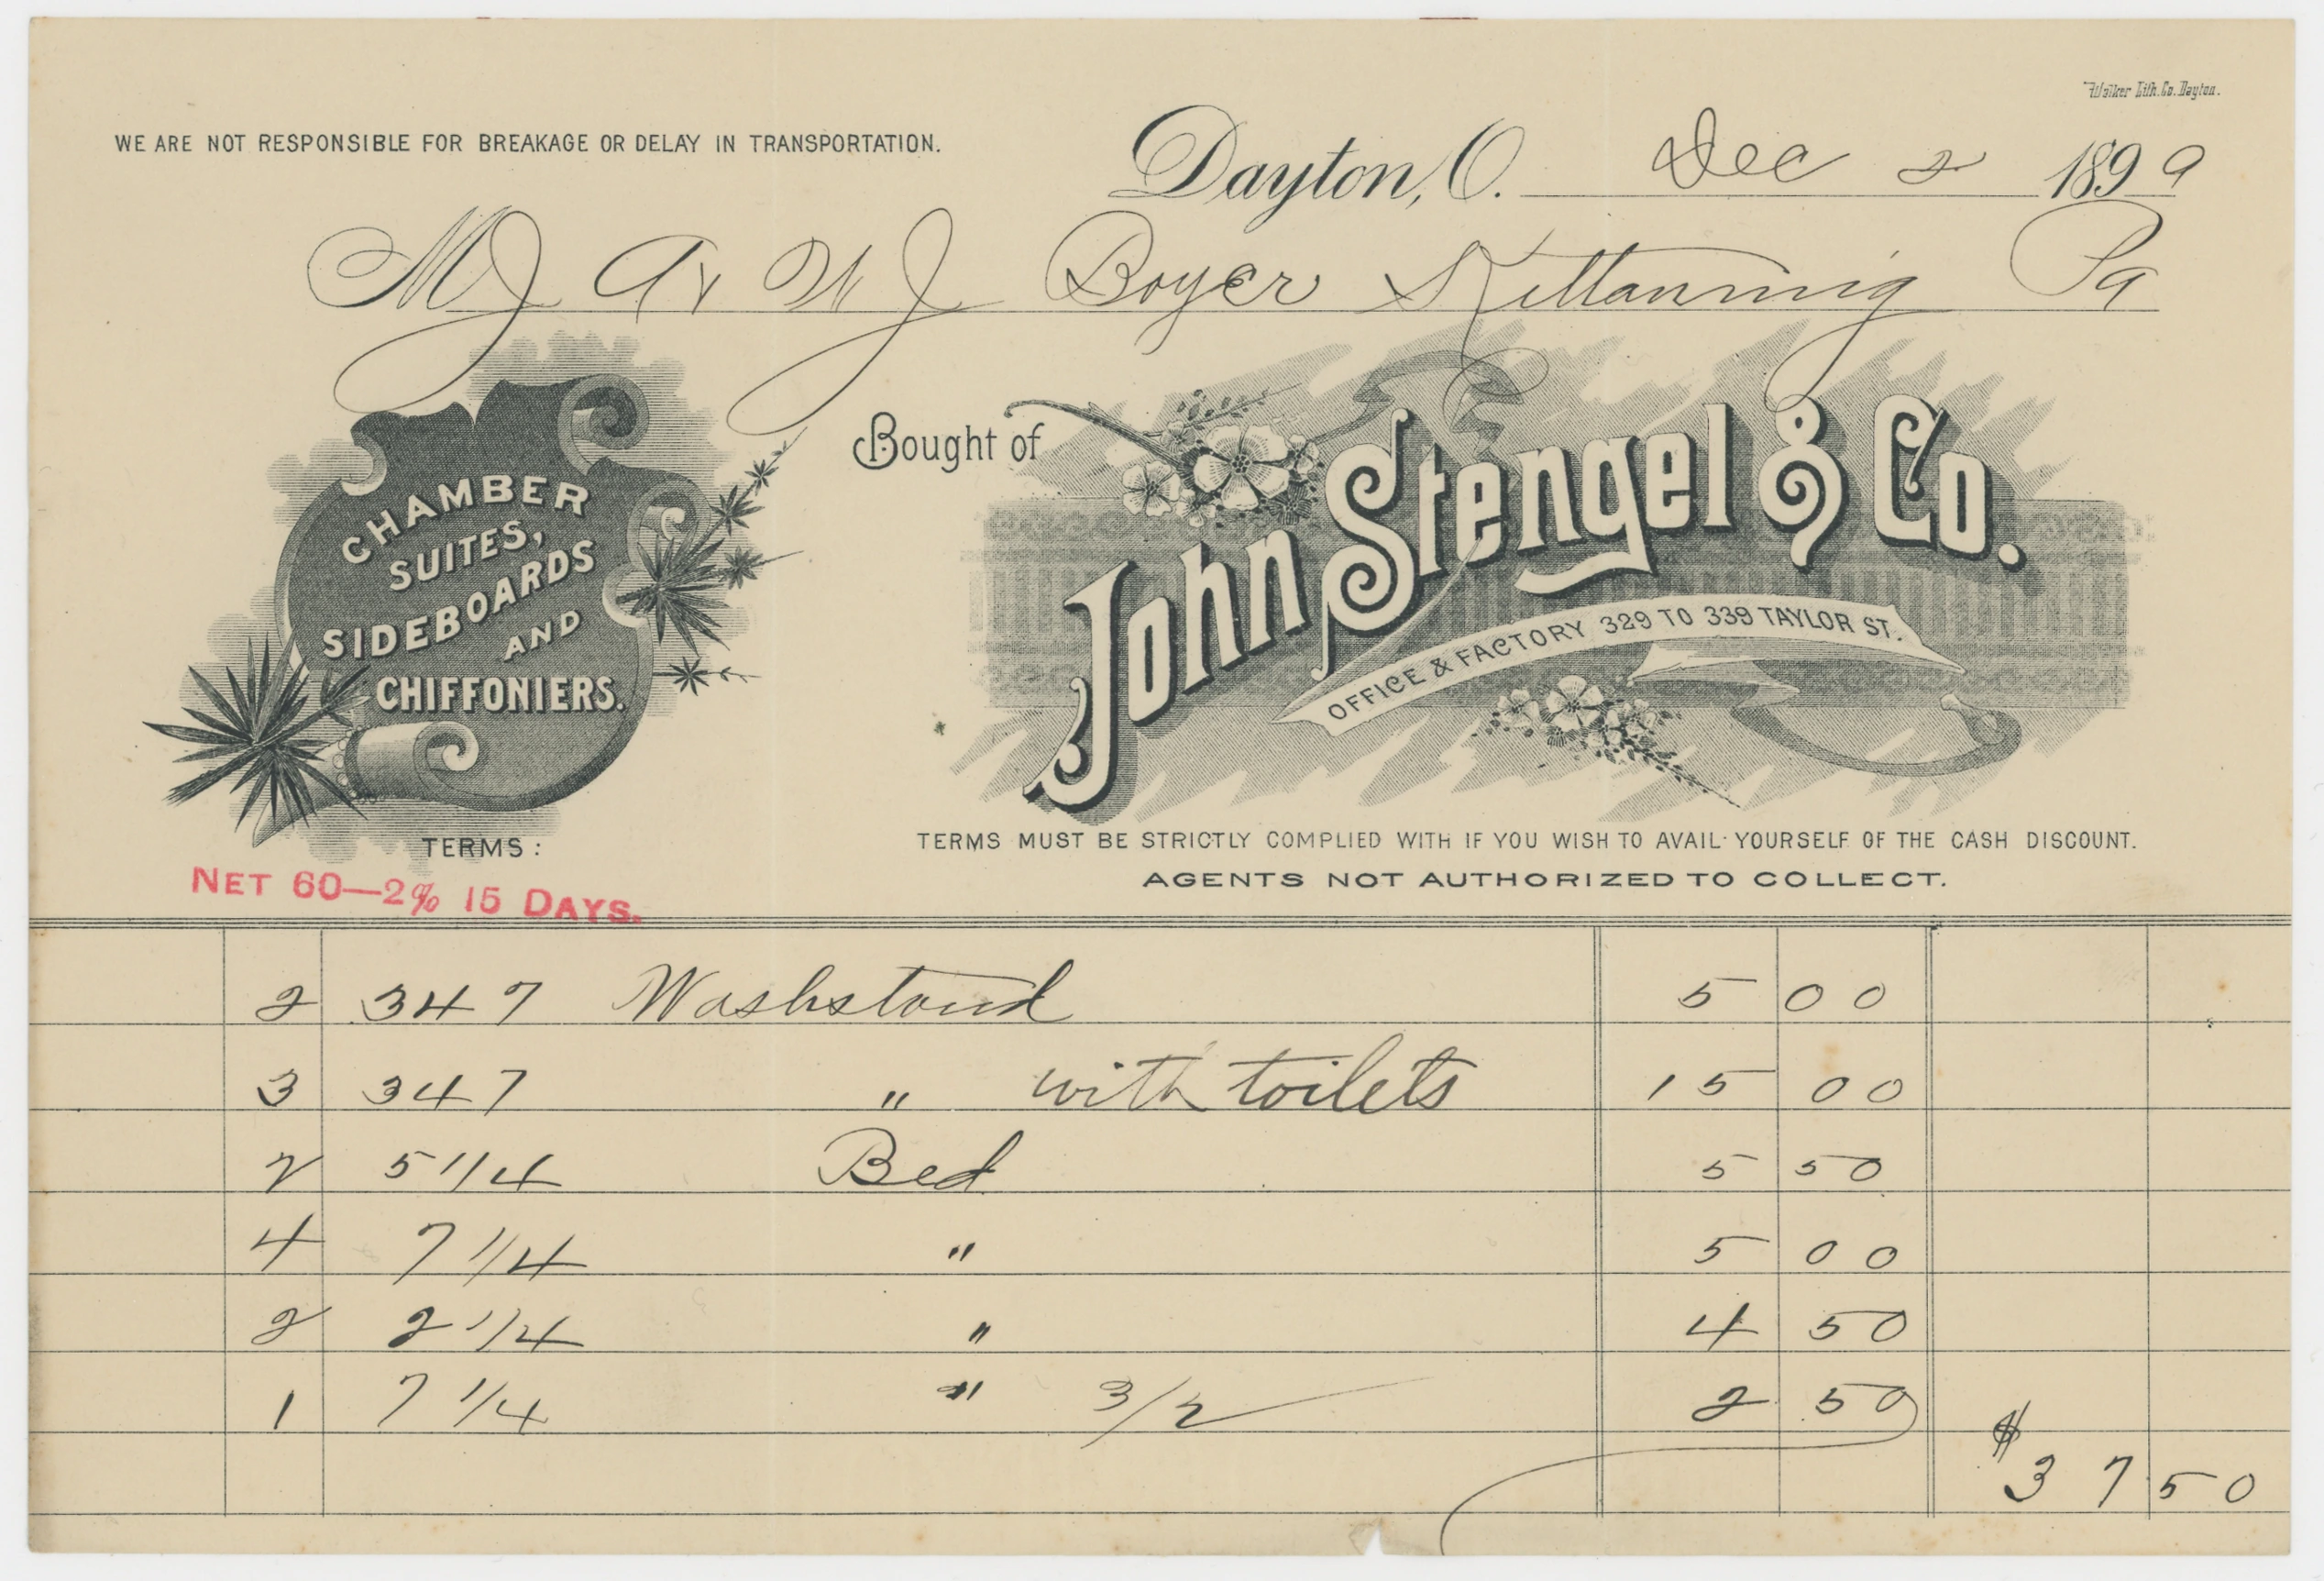 Walker Lith. Co. Dayton.
WE ARE NOT RESPONSIBLE FOR BREAKAGE OR DELAY IN TRANSPORTATION.
Dayton, O. Dec 2 1899
Boyer Kittanning Pa
CHAMBER
SUITES,
SIDEBOARDS
AND
CHIFFONIERS.
Bought of
John Stengel & Co.
OFFICE & FACTORY 329 TO 339 TAYLOR ST.
TERMS:
NET 60—2% 15 DAYS.
TERMS MUST BE STRICTLY COMPLIED WITH IF YOU WISH TO AVAIL YOURSELF OF THE CASH DISCOUNT.
AGENTS NOT AUTHORIZED TO COLLECT.
2 347 Washstand 5 00
3 347 " with toilets 15 00
2 5 1/4 Bed 5 50
4 7 1/4 " 5 00
2 2 1/4 " 4 50
1 7 1/4 " 3/2 2 50
$ 37 50